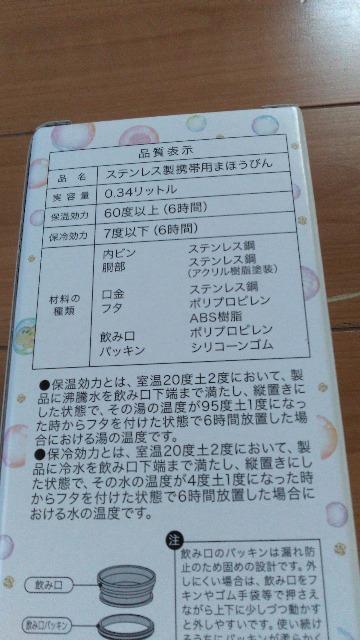 品質表示
品名 ステンレス製携帯用まほうびん
実容量 0.34リットル
保温効力 60度以上(6時間)
保冷効力 7度以下(6時間)
材料の種類
内ビン ステンレス鋼
胴部 ステンレス鋼
(アクリル樹脂塗装)
口金 ステンレス鋼
フタ ポリプロピレン
ABS樹脂
飲み口 ポリプロピレン
パッキン シリコーンゴム
●保温効力とは、室温20度土2度において、製
品に沸騰水を飲み口下端まで満たし、縦置きに
した状態で、その湯の温度が95度土1度になっ
た時からフタを付けた状態で6時間放置した場
合における湯の温度です。
●保冷効力とは、室温20度土2度において、製
品に冷水を飲み口下端まで満たし、縦置きにし
た状態で、その水の温度が4度土1度になった時
からフタを付けた状態で6時間放置した場合に
おける水の温度です。
注
飲み口のパッキンは漏れ防
止のため固めの設計です。外
しにくい場合は、飲み口をフ
キンやゴム手袋等で押さえ
ながら上下に少しづつ動かす
と外しやすいです。使い続け
るうちにパッキンが柔らか
飲み口
飲み口パッキン